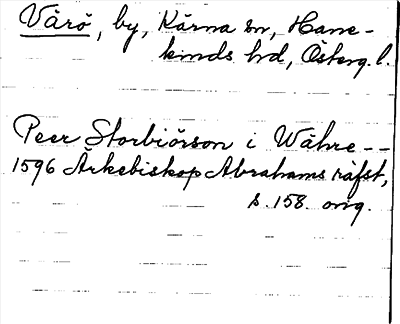 Vårö, by, Kärna sn, Hane-
kinds hd, Österg. l.
Peer Storbiörson i Wåhre--
1596 Ärkebiskop Abrahams räfst,
s. 158. orig.